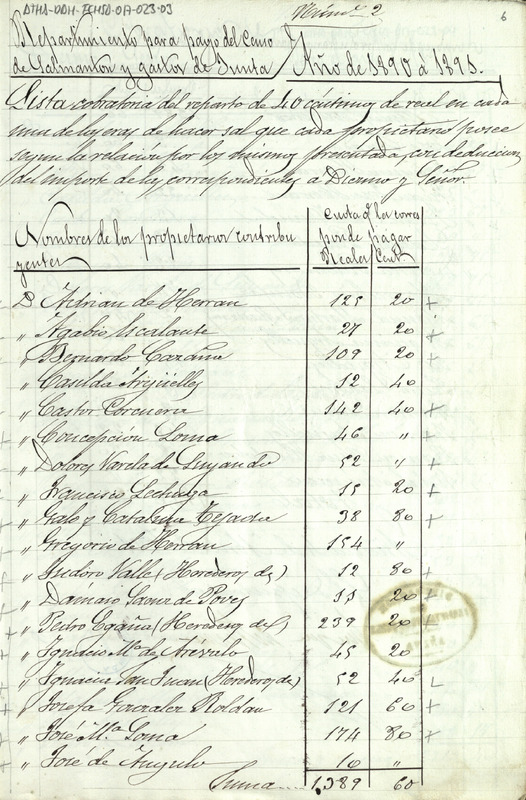 DTHA-DDH-ECHSD-017-023-03
Númº 2
6
Repartimiento para pago del Censo
de Salmanton y gastos de Junta
Año de 1890 á 1891.
Lista cobratoria del reparto de 40 céntimos de real en cada
una de las eras de hacer sal que cada propietario posee
segun la relación por los mismos presentada, con deduccion
del importe de las correspondientes a Diezmo y Señor.
Nombres de los propietarios contribu
yentes
Cuota q. les corres
ponde pagar
Reales Cent.
D. Adrian de Herran 125 20 +
" Agabio Escalante 27 20 +
" Bernardo Cazaña 109 20 +
" Casilda Argüelles 12 40
" Castor Corcuera 142 40 +
" Concepción Loma 46 " +
" Dolores Varela de Luyando 52 " +
" Francisco Lechuga 15 20 +
" Galo y Catalina Tejada 38 80 +
" Gregorio de Herran 154 "
" Isidoro Valle (Herederos de) 12 80 +
" Damaso Saenz de Poves 11 20 +
" Pedro Egaña (Herederos de) 239 20 +
" Ignacio Mª de Arévalo 45 20
" Ignacia San Juan (Herederos de) 52 40
" Josefa Gonzalez Roldan 121 60 +
" José Mª Loma 174 80 +
" José de Angulo 10 "
Suma 1,389 60